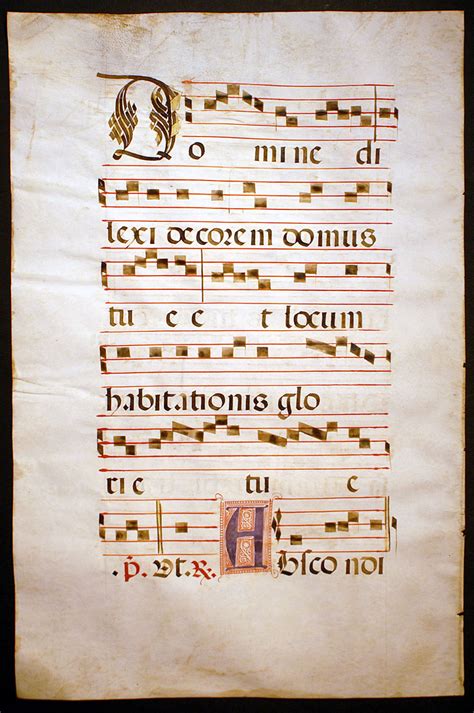 Do mine di
lexi decorem domus
tu e e t locum
habitationis glo
rie tu e
.P. Ut. R. Absco ndi